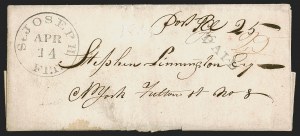 St JOSEPH
APR
14
Flor
25
Stephen Linnington Esq
N York Fulton st No 8